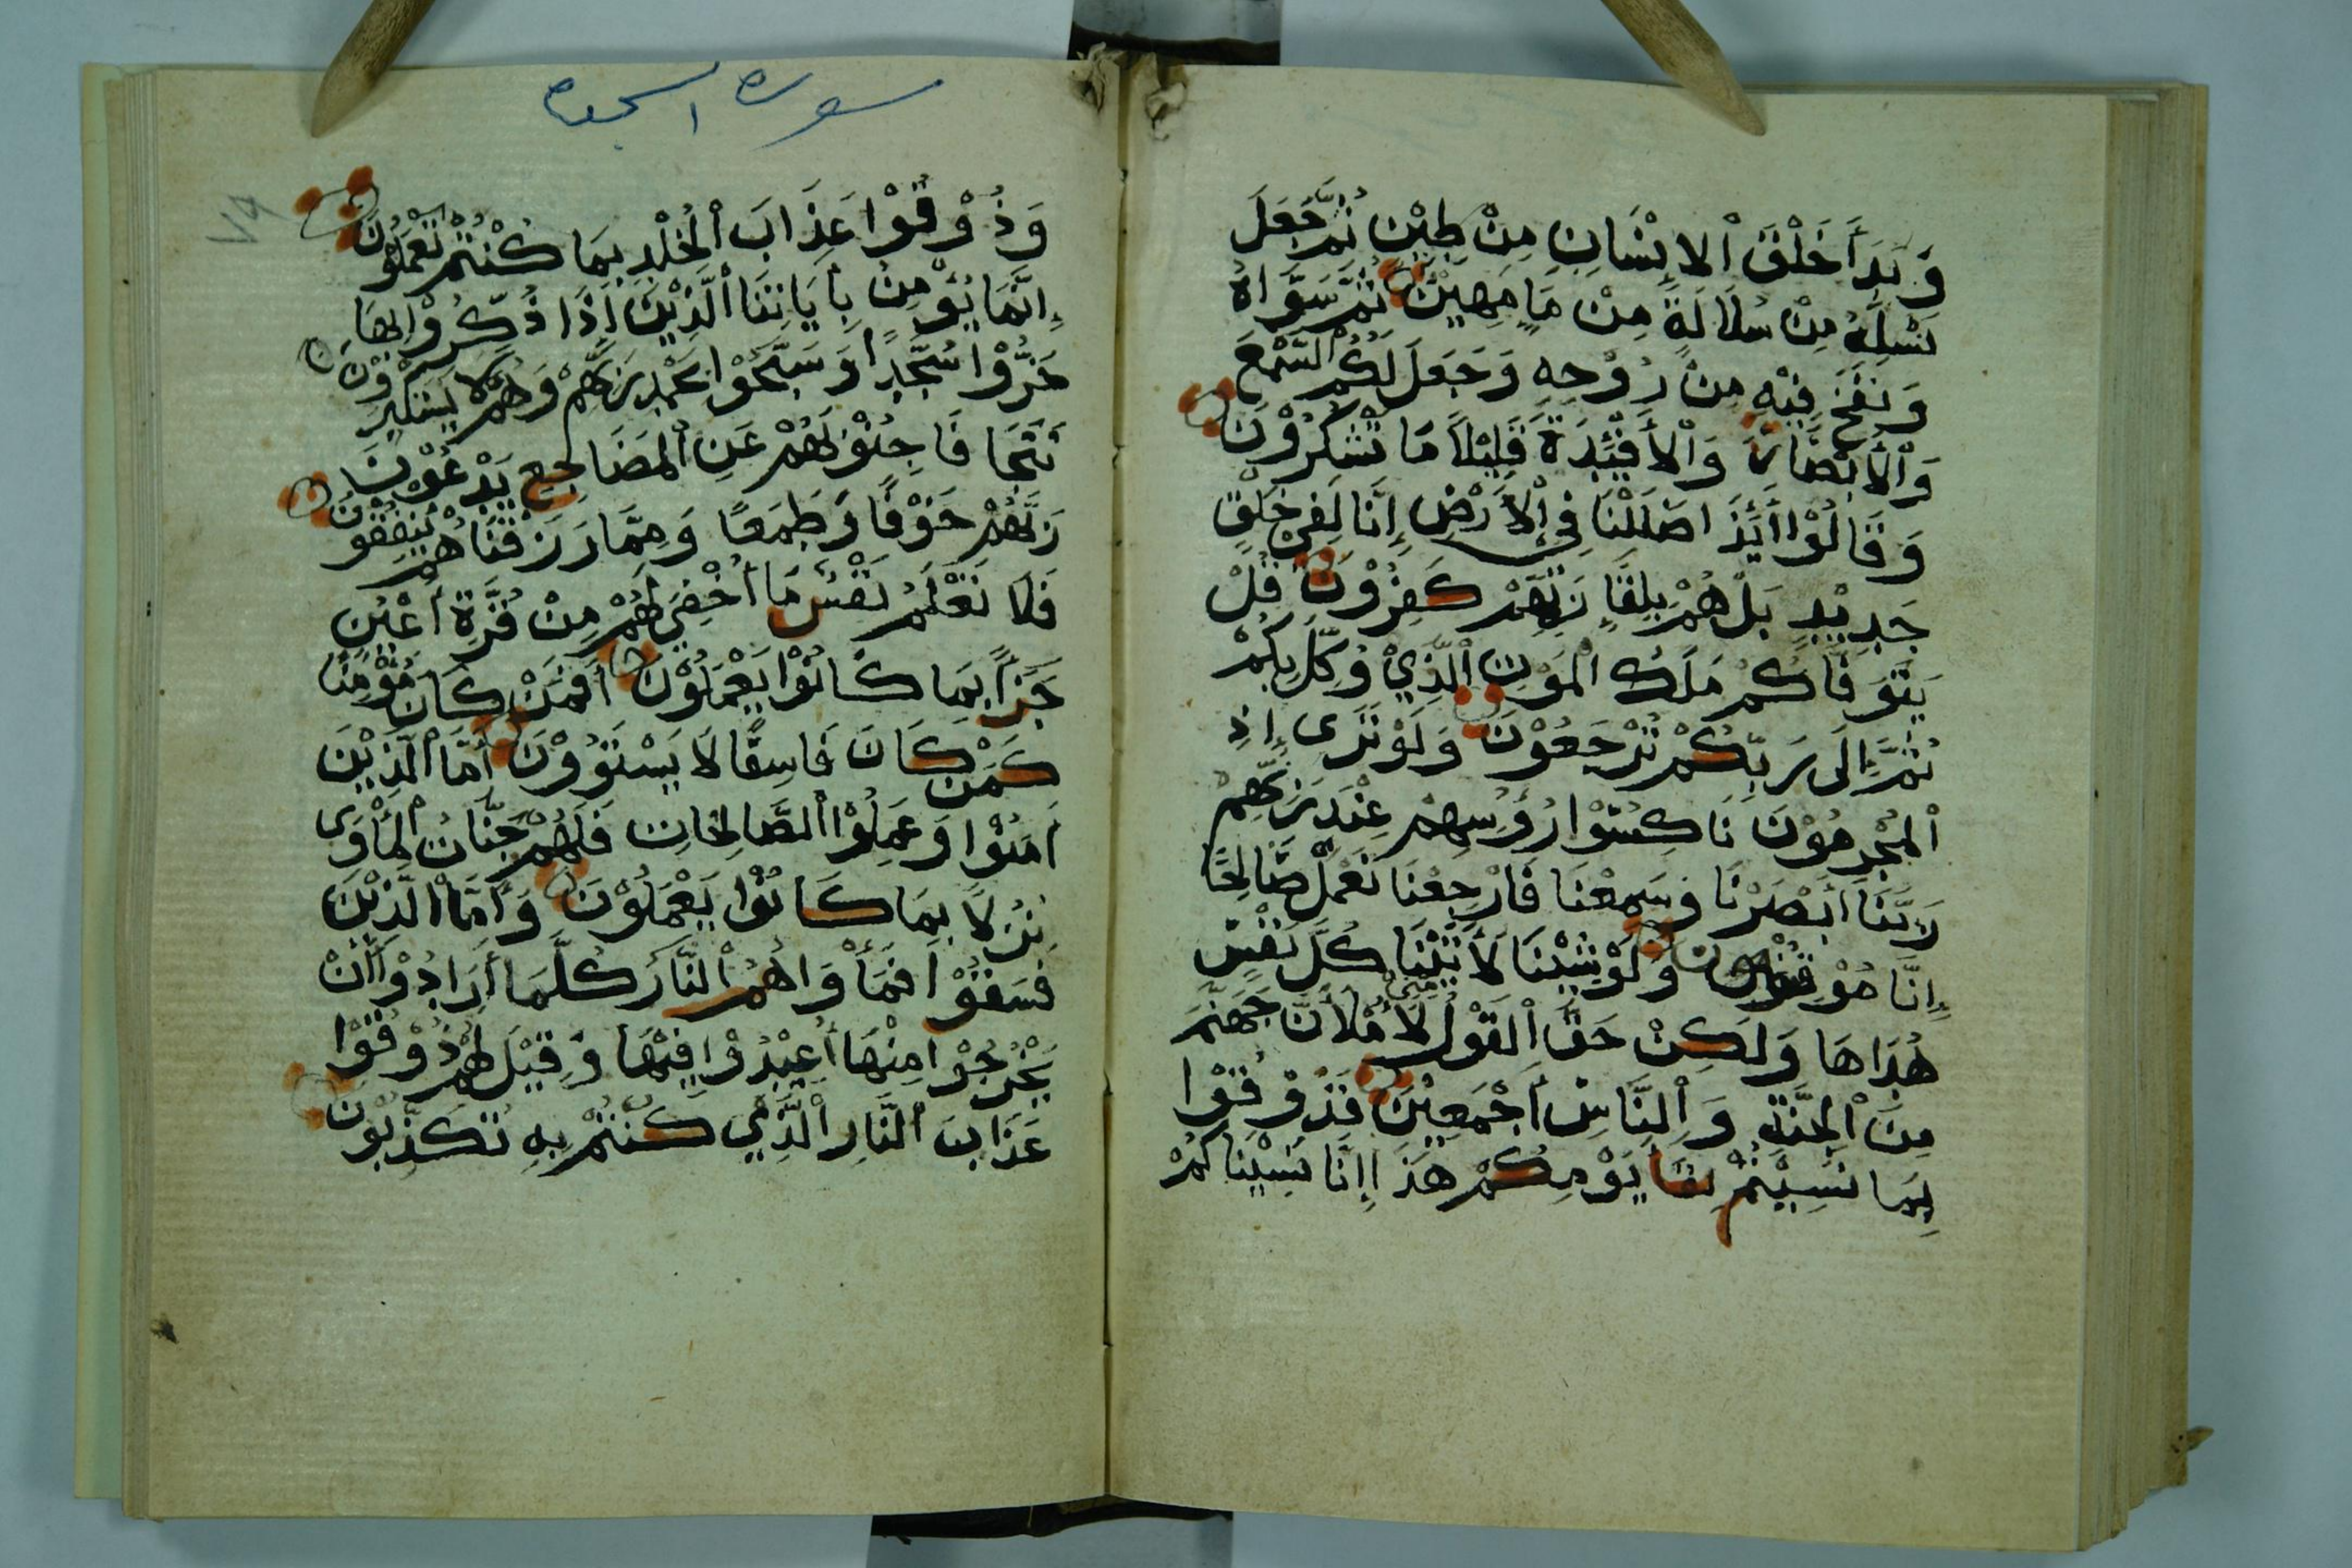 وَبَدَأَ خَلْقَ الْاِنْسَانِ مِنْ طِيْنٍ ثُمَّ جَعَلَ
نَسْلَهُ مِنْ سُلَالَةٍ مِنْ مَاٍ مَهِيْنٍ ثُمَّ سَوَّاهُ
وَنَفَخَ فِيْهِ مِنْ رُوْحِهِ وَجَعَلَ لَكُمُ السَّمْعَ
وَالْأَبْصَارَ وَالْأَفْئِدَةَ قَلِيْلاً مَا تَشْكُرُوْنَ
وَقَالُوْا أَئِذَا ضَلَلْنَا فِي الْأَرْضِ إِنَّا لَفِيْ خَلْقٍ
جَدِيْدٍ بَلْ هُمْ بِلِقَاٍ رَبِّهِمْ كَفِرُوْنَ قُلْ
يَتَوَفَّاكُمْ مَلَكُ الْمَوْتِ الَّذِيْ وُكِّلَ بِكُمْ
ثُمَّ إِلَى رَبِّكُمْ تُرْجَعُوْنَ وَلَوْ تَرَى إِذِ
الْمُجْرِمُوْنَ نَاكِسُوْا رُؤُسِهِمْ عِنْدَ رَبِّهِمْ
رَبَّنَا أَبْصَرْنَا وَسَمِعْنَا فَارْجِعْنَا نَعْمَلْ صَالِحًا
إِنَّا مُوْقِنُوْنَ وَلَوْ شِئْنَا لَأَتَيْنَا كُلَّ نَفْسٍ
هُدَاهَا وَلَكِنْ حَقَّ الْقَوْلُ مِنِّيْ لَأَمْلَأَنَّ جَهَنَّمَ
مِنَ الْجِنَّةِ وَالنَّاسِ أَجْمَعِيْنَ فَذُوْقُوْا
بِمَا نَسِيْتُمْ لِقَاَ يَوْمِكُمْ هَذَا إِنَّا نَسِيْنَاكُمْ
سورة السجدة
وَذُوْقُوْا عَذَابَ الْخُلْدِ بِمَا كُنْتُمْ تَعْمَلُوْنَ
إِنَّمَا يُؤْمِنُ بِأَيَاتِنَا الَّذِيْنَ إِذَا ذُكِّرُوْا بِهَا
خَرُّوْا سُجَّدًا وَسَبَّحُوْا بِحَمْدِ رَبِّهِمْ وَهُمْ لَا يَسْتَكْبِرُوْنَ
تَتَجَافَا جُنُوْبُهُمْ عَنِ الْمَضَاجِعِ يَدْعُوْنَ
رَبَّهُمْ خَوْفًا وَطَمَعًا وَمِمَّا رَزَقْنَاهُمْ يُنْفِقُوْنَ
فَلَا تَعْلَمُ نَفْسٌ مَا أُخْفِيَ لَهُمْ مِنْ قُرَّةِ أَعْيُنٍ
جَزَاً بِمَا كَانُوْا يَعْمَلُوْنَ أَفَمَنْ كَانَ مُؤْمِنًا
كَمَنْ كَانَ فَاسِقًا لَا يَسْتَوُوْنَ أَمَّا الَّذِيْنَ
أَمَنُوْا وَعَمِلُوْا الصَّالِحَاتِ فَلَهُمْ جَنَّاتُ الْمَأْوَى
نُزُلاً بِمَا كَانُوْا يَعْمَلُوْنَ وَأَمَّا الَّذِيْنَ
فَسَقُوْا فَمَأْوَاهُمُ النَّارُ كُلَّمَا أَرَادُوْا أَنْ
يَخْرُجُوْا مِنْهَا أُعِيْدُوْا فِيْهَا وَقِيْلَ لَهُمْ ذُوْقُوْا
عَذَابَ النَّارِ الَّذِيْ كُنْتُمْ بِهِ تُكَذِّبُوْنَ